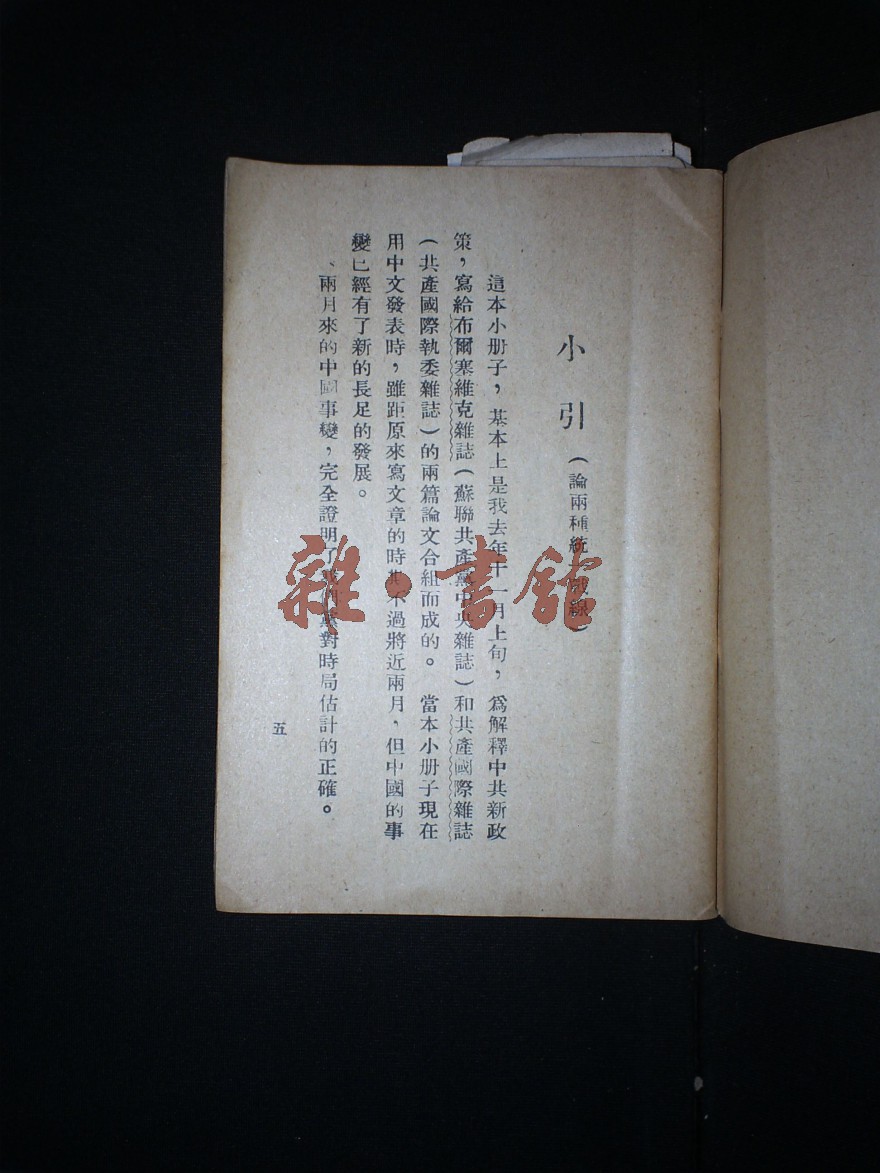 小引（論兩種統一戰線）
這本小册子，基本上是我去年十一月上旬，爲解釋中共新政
策，寫給布爾塞維克雜誌（蘇聯共產黨中央雜誌）和共產國際雜誌
（共產國際執委雜誌）的兩篇論文合組而成的。當本小册子現在
用中文發表時，雖距原來寫文章的時期不過將近兩月，但中國的事
變已經有了新的長足的發展。
、兩月來的中國事變，完全證明了我們黨對時局估計的正確。
五
雜·書館